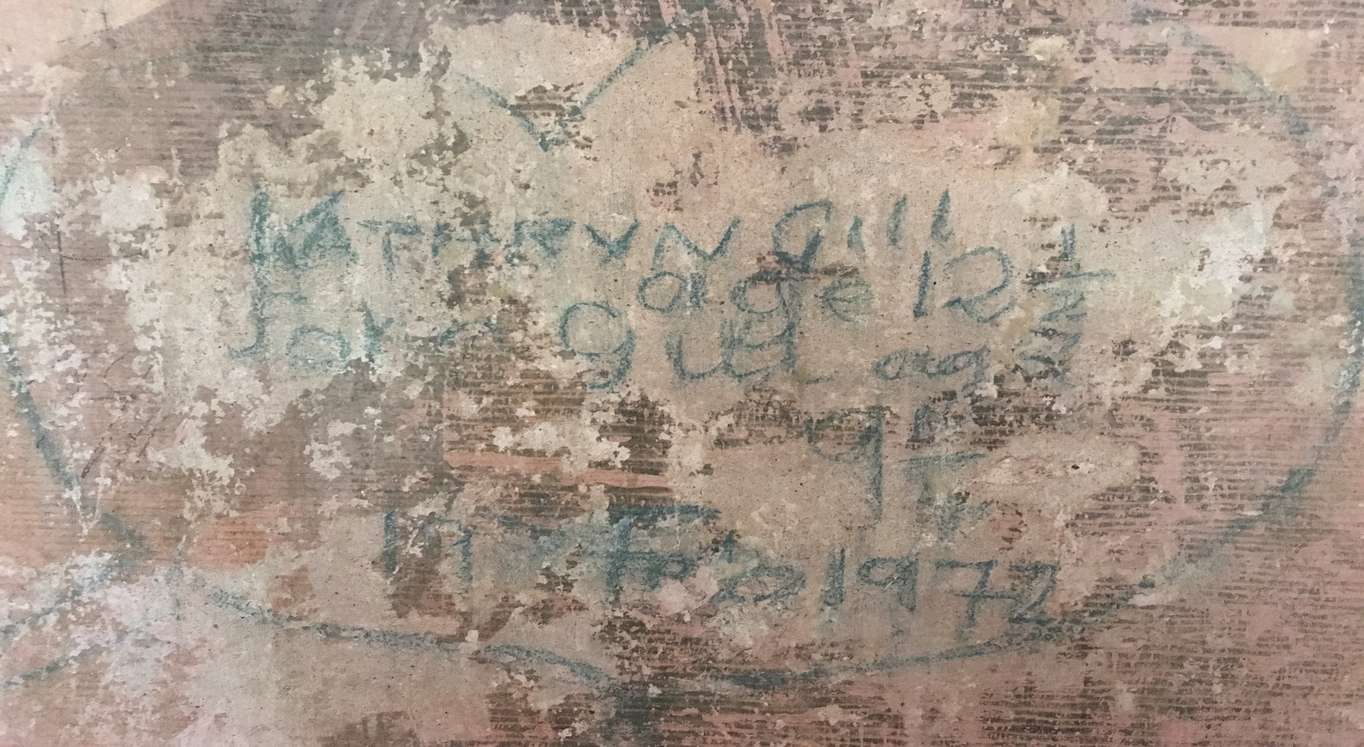 KATHRYN Gill
age 12 1/2
Gill age
9
in Feb 1972